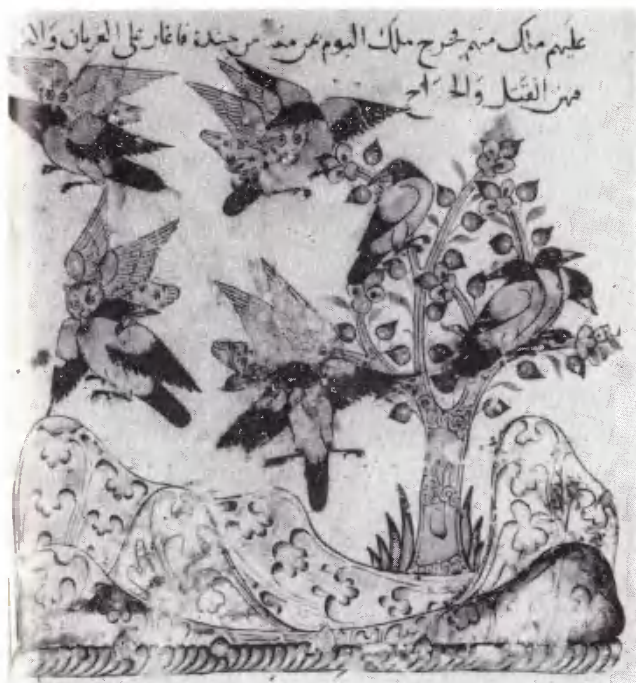 عليهم ملك منهم فخرج ملك البوم بمن معه من جنده فاغار على الغربان وا
فيهن القتل والجراح